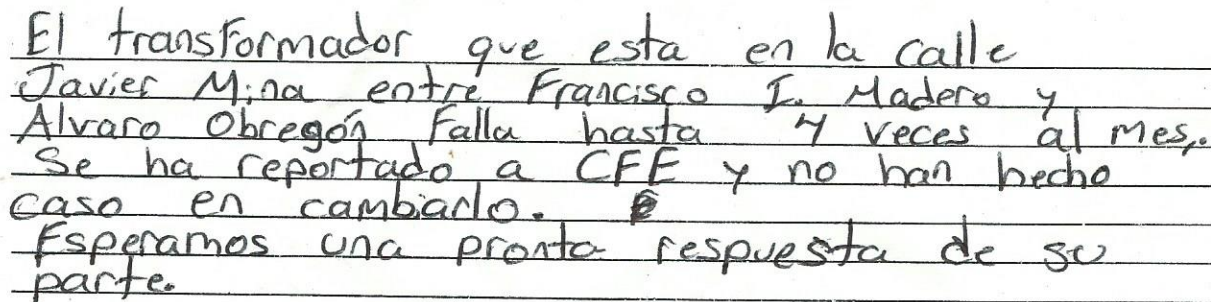 El transformador que esta en la calle
Javier Mina entre Francisco I. Madero y
Alvaro Obregón Falla hasta 4 veces al mes,.
Se ha reportado a CFE y no han hecho
caso en cambiarlo.
Esperamos una pronta respuesta de su
parte.